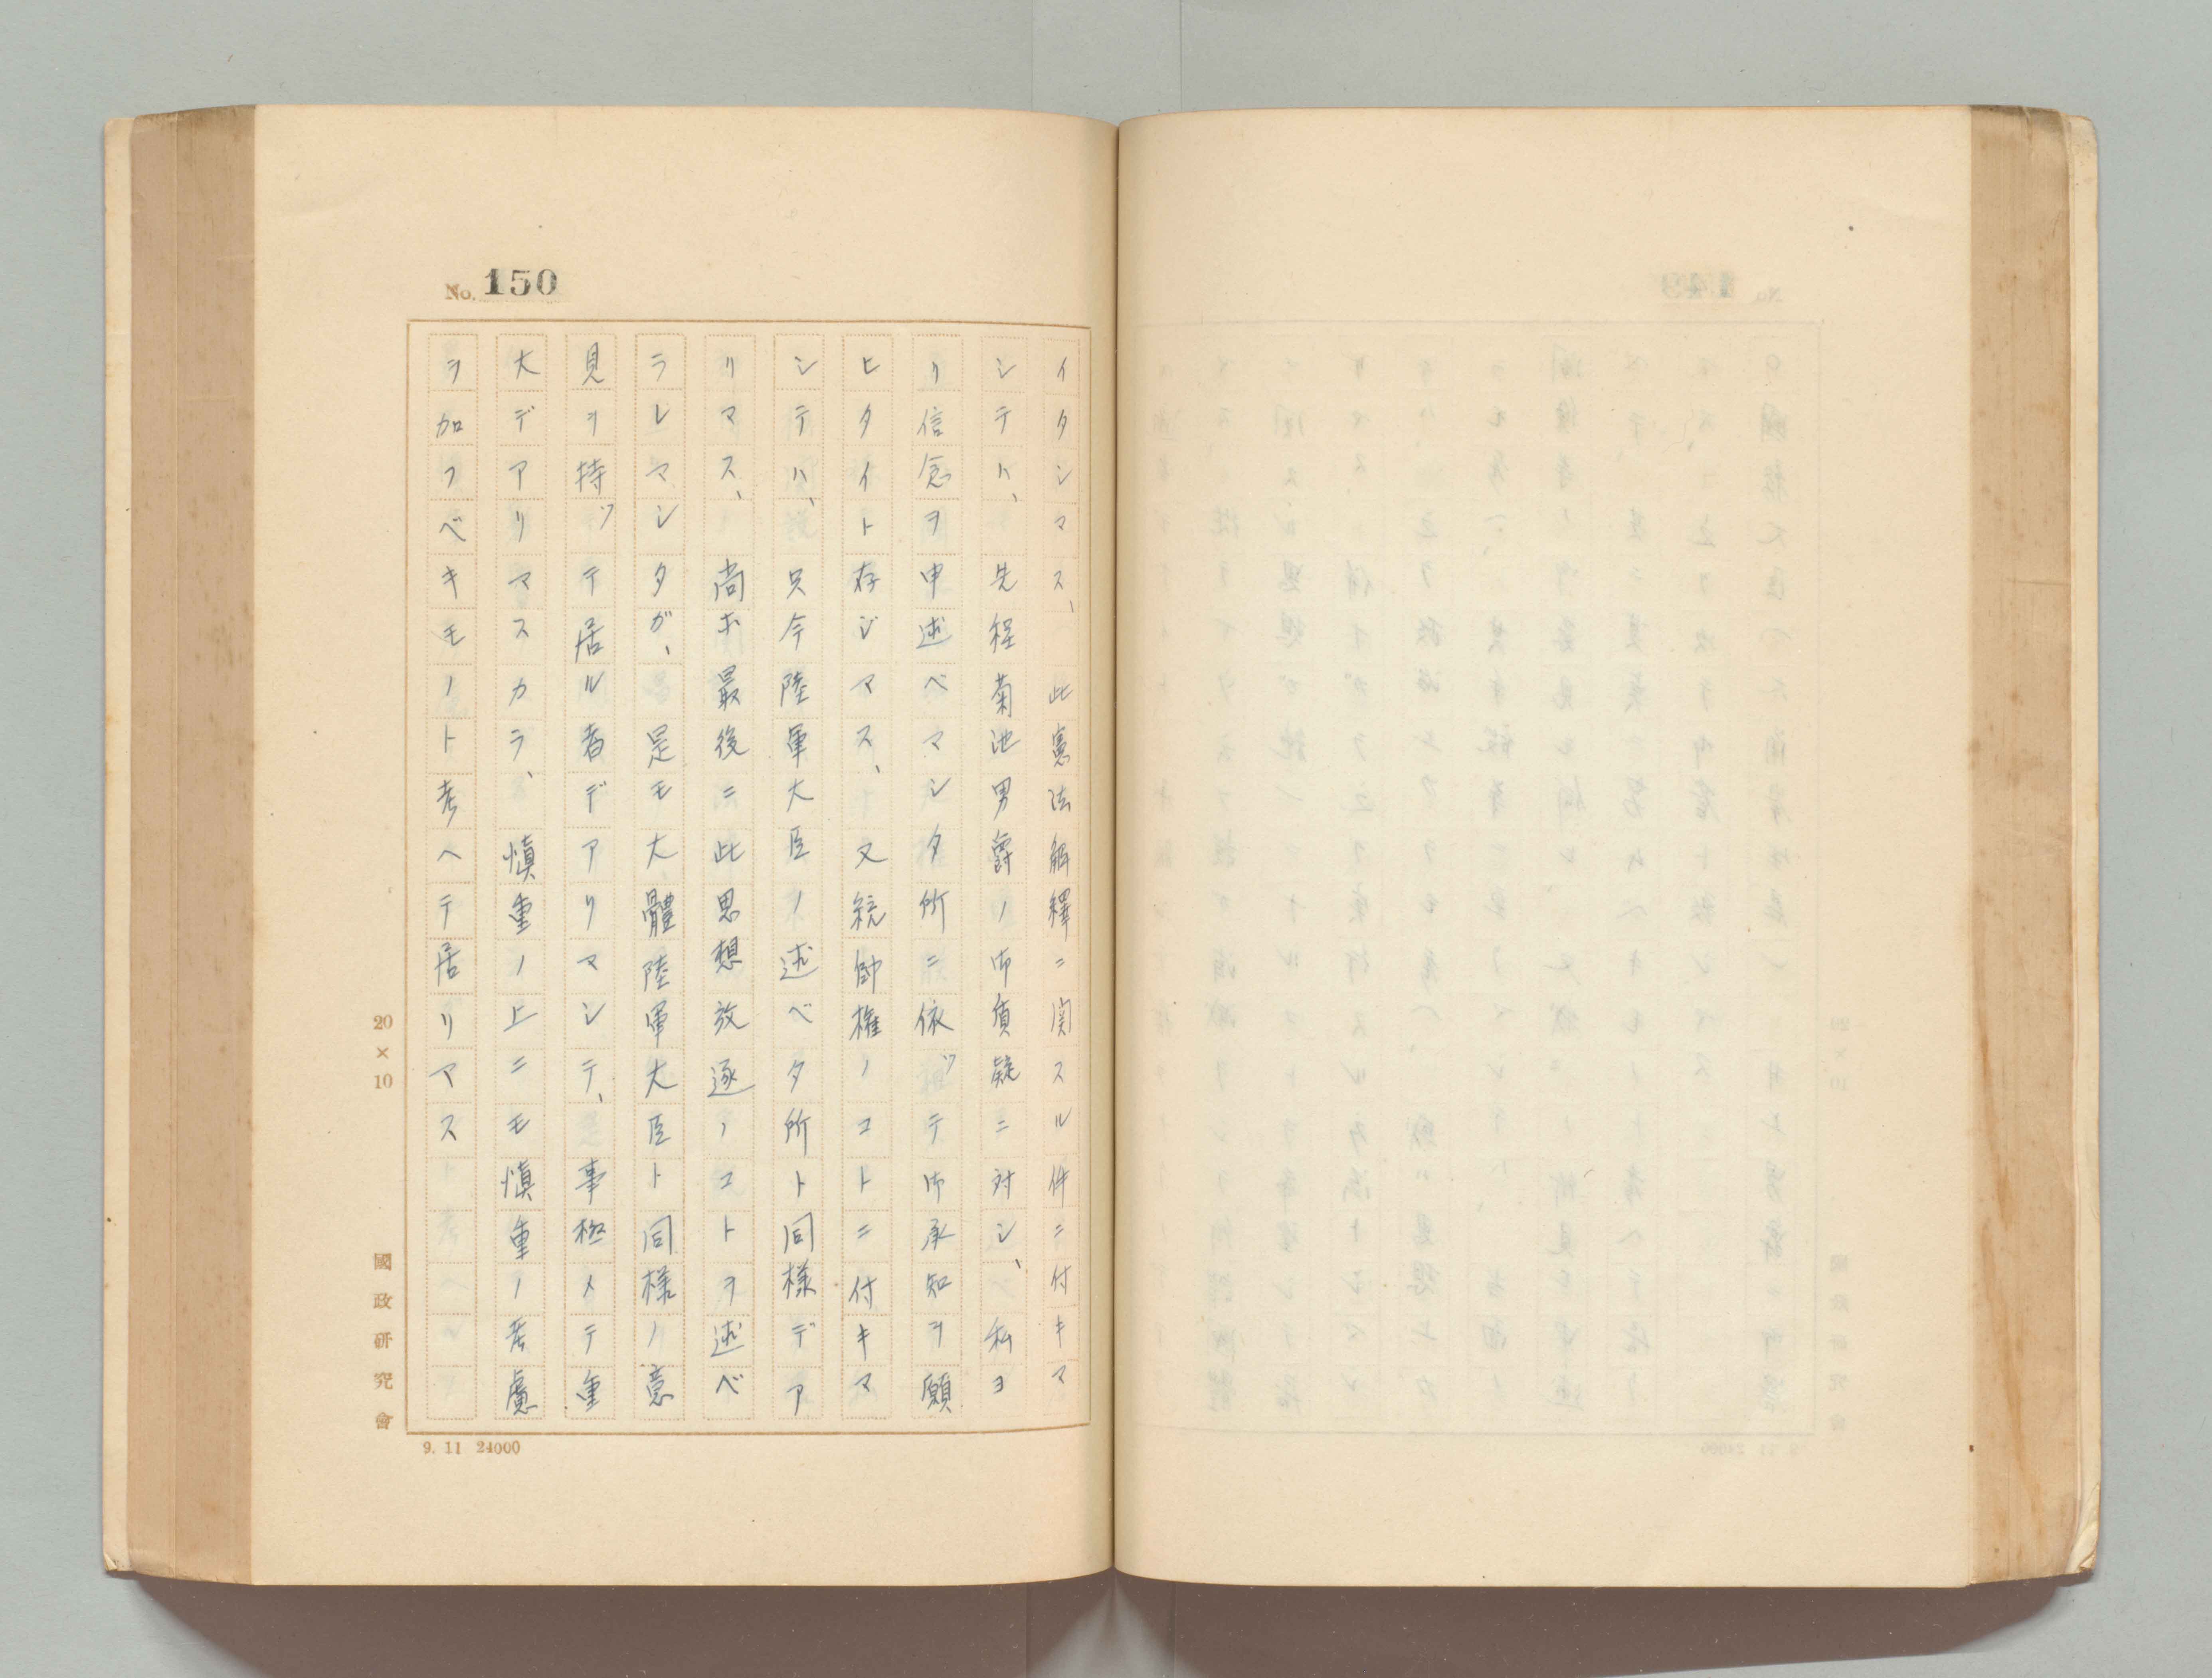 No. 150
イタシマス、此憲法解釋ニ関スル件ニ付キマ
シテハ、先程菊池男爵ノ御質疑ニ対シ、私ヨ
リ信念ヲ申述ベマシタ所ニ依ッテ御承知ヲ願
ヒタイト存ジマス、又統帥権ノコトニ付キマ
シテハ、只今陸軍大臣ノ述ベタ所ト同様デア
リマス、尚ホ最後ニ此思想放逐ノコトヲ述ベ
ラレマシタガ、是モ大體陸軍大臣ト同様ノ意
見ヲ持ッテ居ル者デアリマシテ、事極メテ重
大デアリマスカラ、慎重ノ上ニモ慎重ノ考慮
ヲ加フベキモノト考ヘテ居リマス
20×10
國政研究會
9. 11 24000